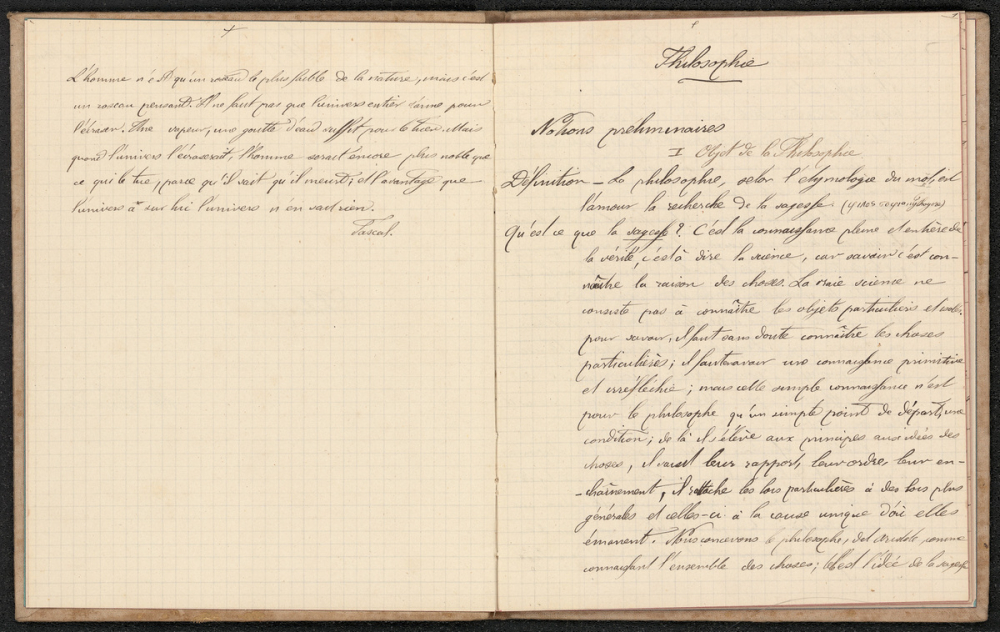 L'homme n'est qu'un roseau le plus faible de la nature, mais c'est
un roseau pensant. Il ne faut pas que l'univers entier s'arme pour
l'écraser. Une vapeur, une goutte d'eau suffit pour le tuer. Mais
quand l'univers l'écraserait, l'homme serait encore plus noble que
ce qui le tue, parce qu'il sait qu'il meurt; et l'avantage que
l'univers a sur lui l'univers n'en sait rien.
Pascal.
Philosophie
Notions préliminaires
I Objet de la Philosophie
Définition – La philosophie, selon l'étymologie du mot, est
l'amour la recherche de la sagesse
Qu'est ce que la sagesse ? C'est la connaissance pleine et entière de
la vérité, c'est à dire la science, car savoir c'est con-
naître la raison des choses. La vraie science ne
consiste pas à connaître les objets particuliers et isolés.
pour savoir, il faut sans doute connaître les choses
particulières; il faut avoir une connaissance primitive
et irréfléchie; mais cette simple connaissance n'est
pour le philosophe qu'un simple point de départ, une
condition; de là il s'élève aux principes aux idées des
choses, il saisit leurs rapports, leur ordre, leur en-
-chaînement, il rattache les lois particulières à des lois plus
générales et celles-ci à la cause unique d'où elles
émanent. Nous concevons le philosophe, dit Aristote, comme
connaissant l'ensemble des choses; telle est l'idée de la sagesse